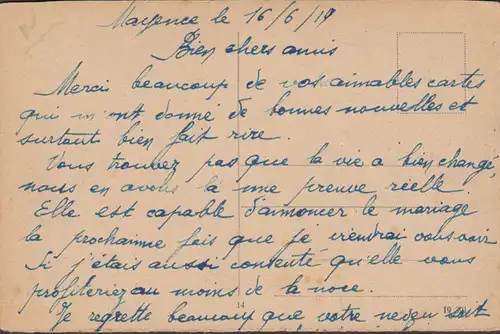 Mayence le 16/6/19
Bien chers amis
Merci beaucoup de vos aimables cartes
qui m'ont donné de bonnes nouvelles et
surtout bien fait rire.
Vous trouvez pas que la vie a bien changé,
nous en avons là une preuve réelle.
Elle est capable d'annoncer le mariage
la prochaine fois que je viendrai vous voir
Si j'étais aussi consenté qu'elle vous
profiteriez au moins de la noce.
Je regrette beaucoup que votre neveu soit
14